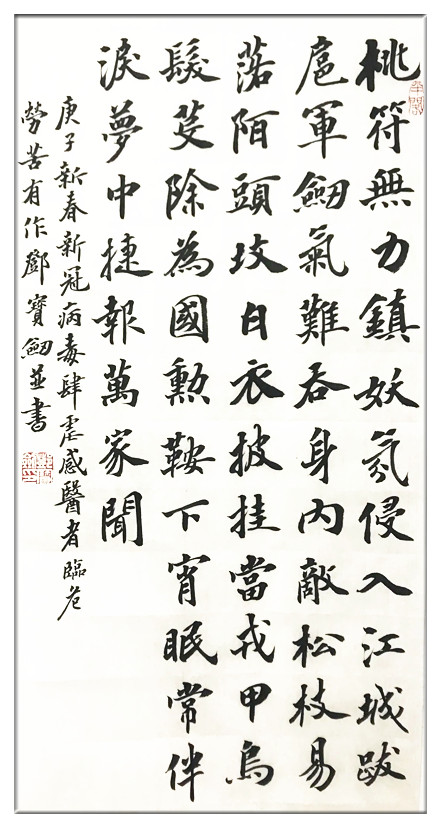 桃符無力鎮妖氛侵入江城跋
扈軍劒氣難吞身內敵松枝易
落陌頭坟白衣披挂當戎甲烏
髮芟除為國勳鞍下宵眠常伴
淚夢中捷報萬家聞
庚子新春新冠病毒肆虐感醫者臨危
勞苦有作鄧寶劒並書